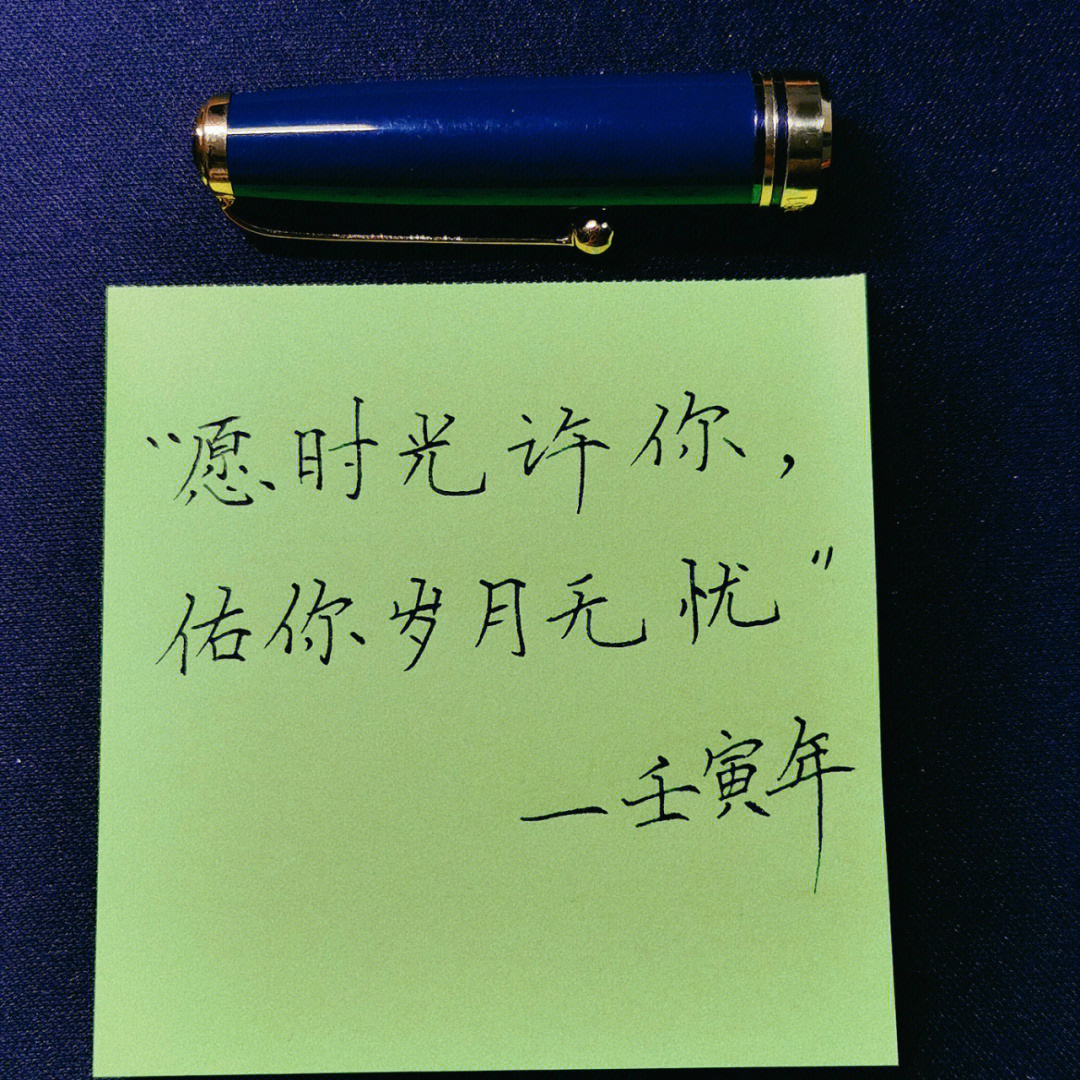 “愿时光许你，
佑你岁月无忧”
—壬寅年